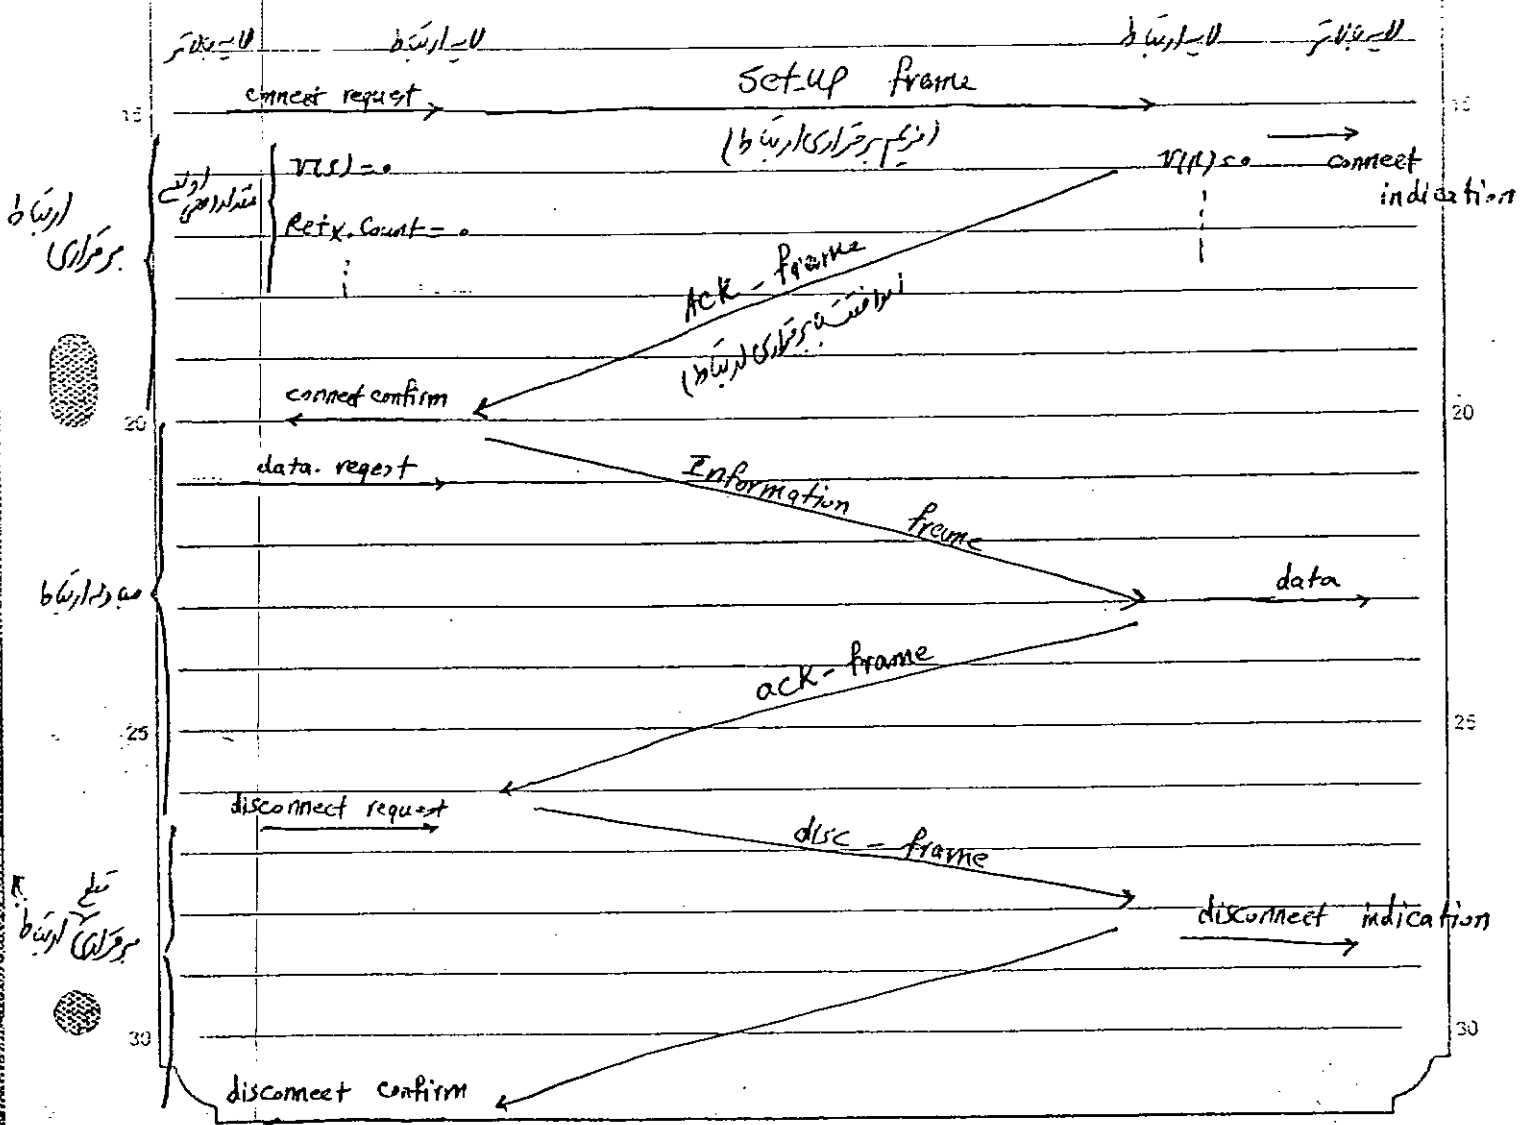 لایه بالاتر لایه ارتباط لایه ارتباط لایه بالاتر
connect request Set-up frame
15 15
(فریم برقراری ارتباط)
V(s)=0 V(R)=0 connect
indication
مقداردهی اولیه
Retx.Count=0
برقراری ارتباط
Ack-frame
(موافقت با برقراری ارتباط)
connect confirm
20 20
data.reqest Information frame
مبادله ارتباط
data
ack-frame
25 25
disconnect request
disc-frame
قطع
برقراری ارتباط
disconnect indication
30 30
disconnect confirm